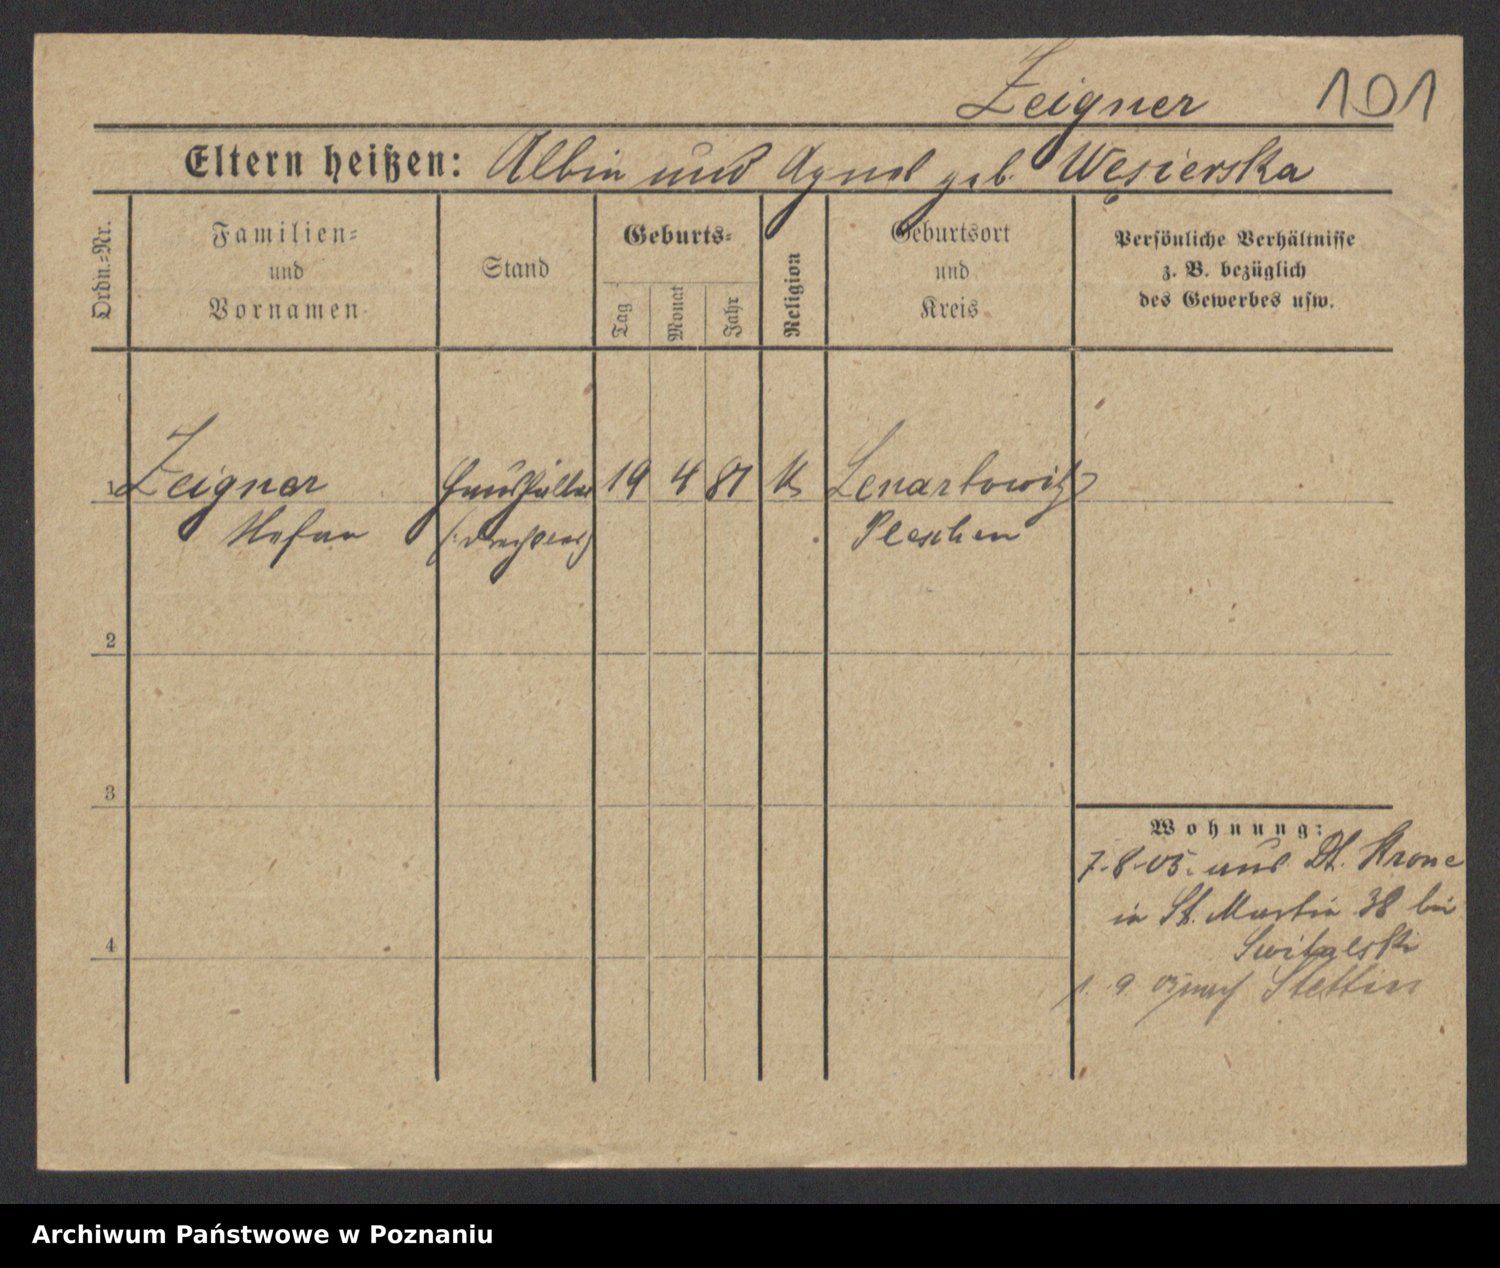 Zeigner 101
Eltern heißen: Albin und Agnes geb. Wesierska
Ordn.=Nr.
Familien=
und
Vornamen
Stand
Geburts=
Tag
Monat
Jahr
Religion
Geburtsort
und
Kreis
Persönliche Verhältnisse
z. B. bezüglich
des Gewerbes usw.
1 Zeigner Haushälter 19 4 81 k Lenartowitz
Stefan Pleschen
2
3
4
Wohnung:
7.8.05. aus Dt. Krone
in St. Martin 38 bei
Switalski
1. 9. 05 nach Stettin
Archiwum Państwowe w Poznaniu